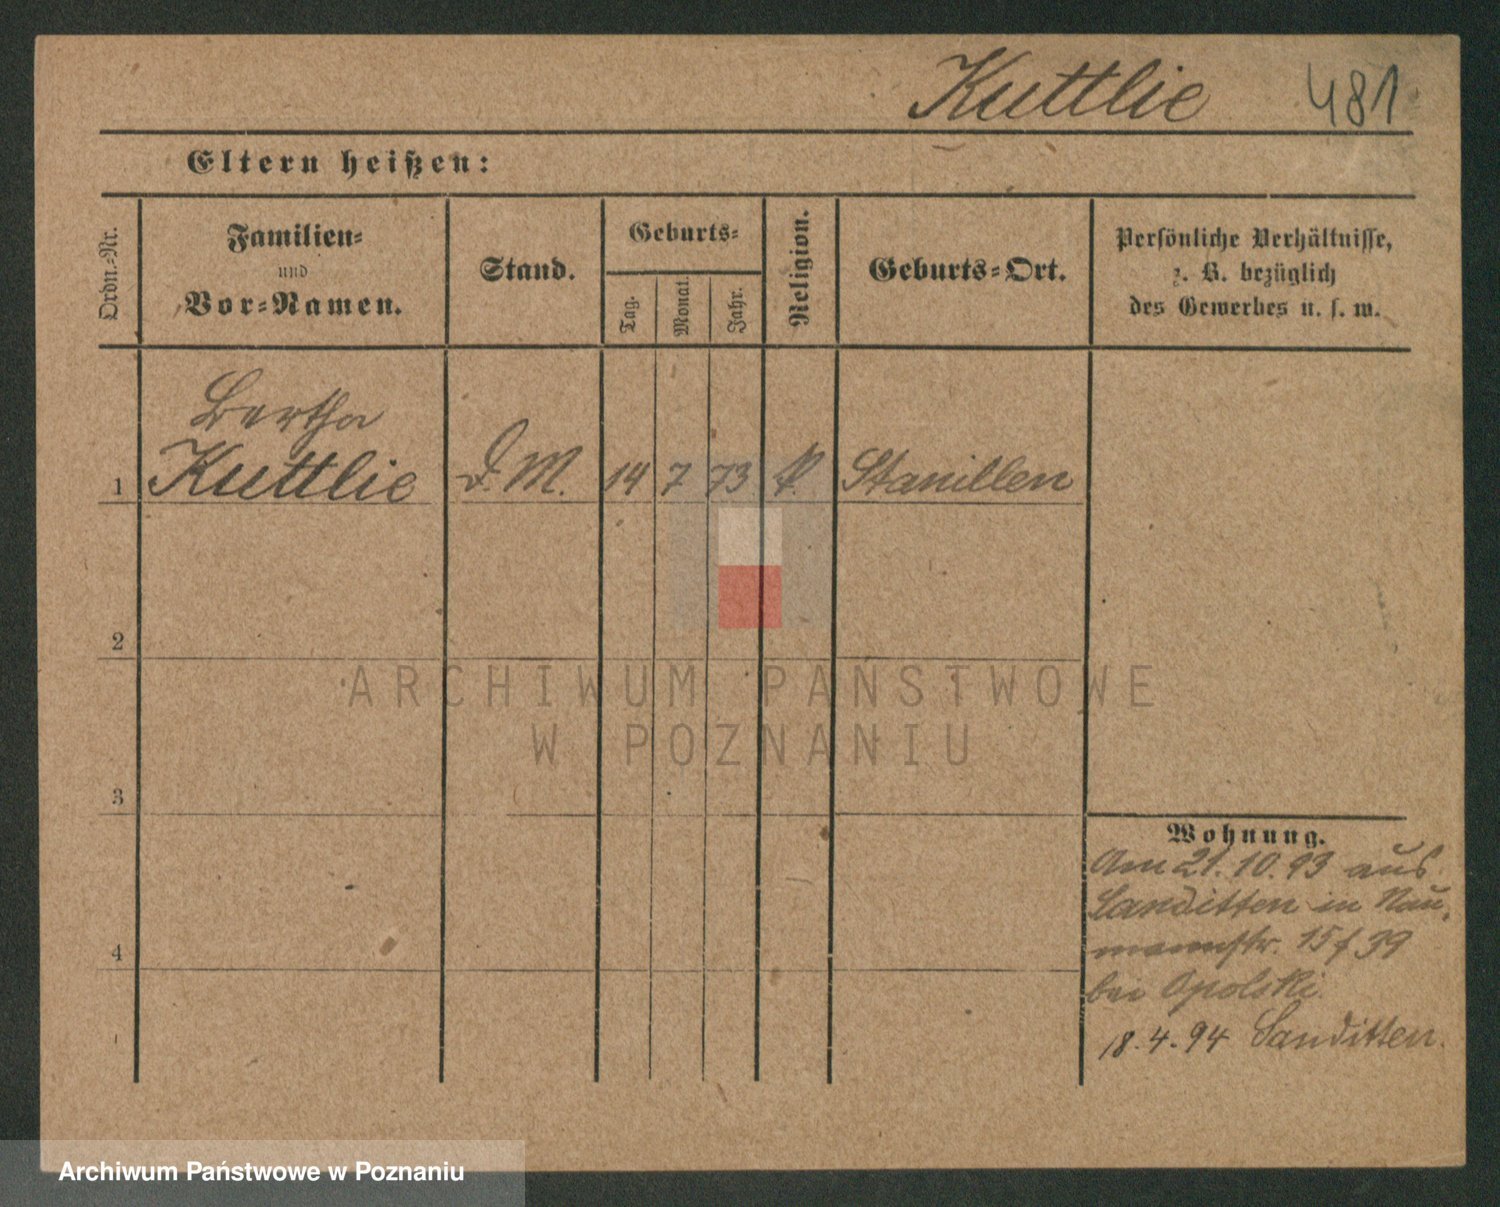 Kuttlie 481
Eltern heißen:
Ordn.-Nr.
Familien-
und
Vor-Namen.
Stand.
Geburts-
Tag.
Monat.
Jahr.
Religion.
Geburts-Ort.
Persönliche Verhältnisse,
z. B. bezüglich
des Gewerbes u. s. w.
Bertha
1 Kuttlie D. M. 14 7 73. k. Stanillen
2
3
4
Wohnung.
Am 21.10.93 aus
Sanditten in Nau-
mannstr. 15 f 39
bei Opolski.
18.4.94 Sanditten.
ARCHIWUM PAŃSTWOWE
W POZNANIU
Archiwum Państwowe w Poznaniu